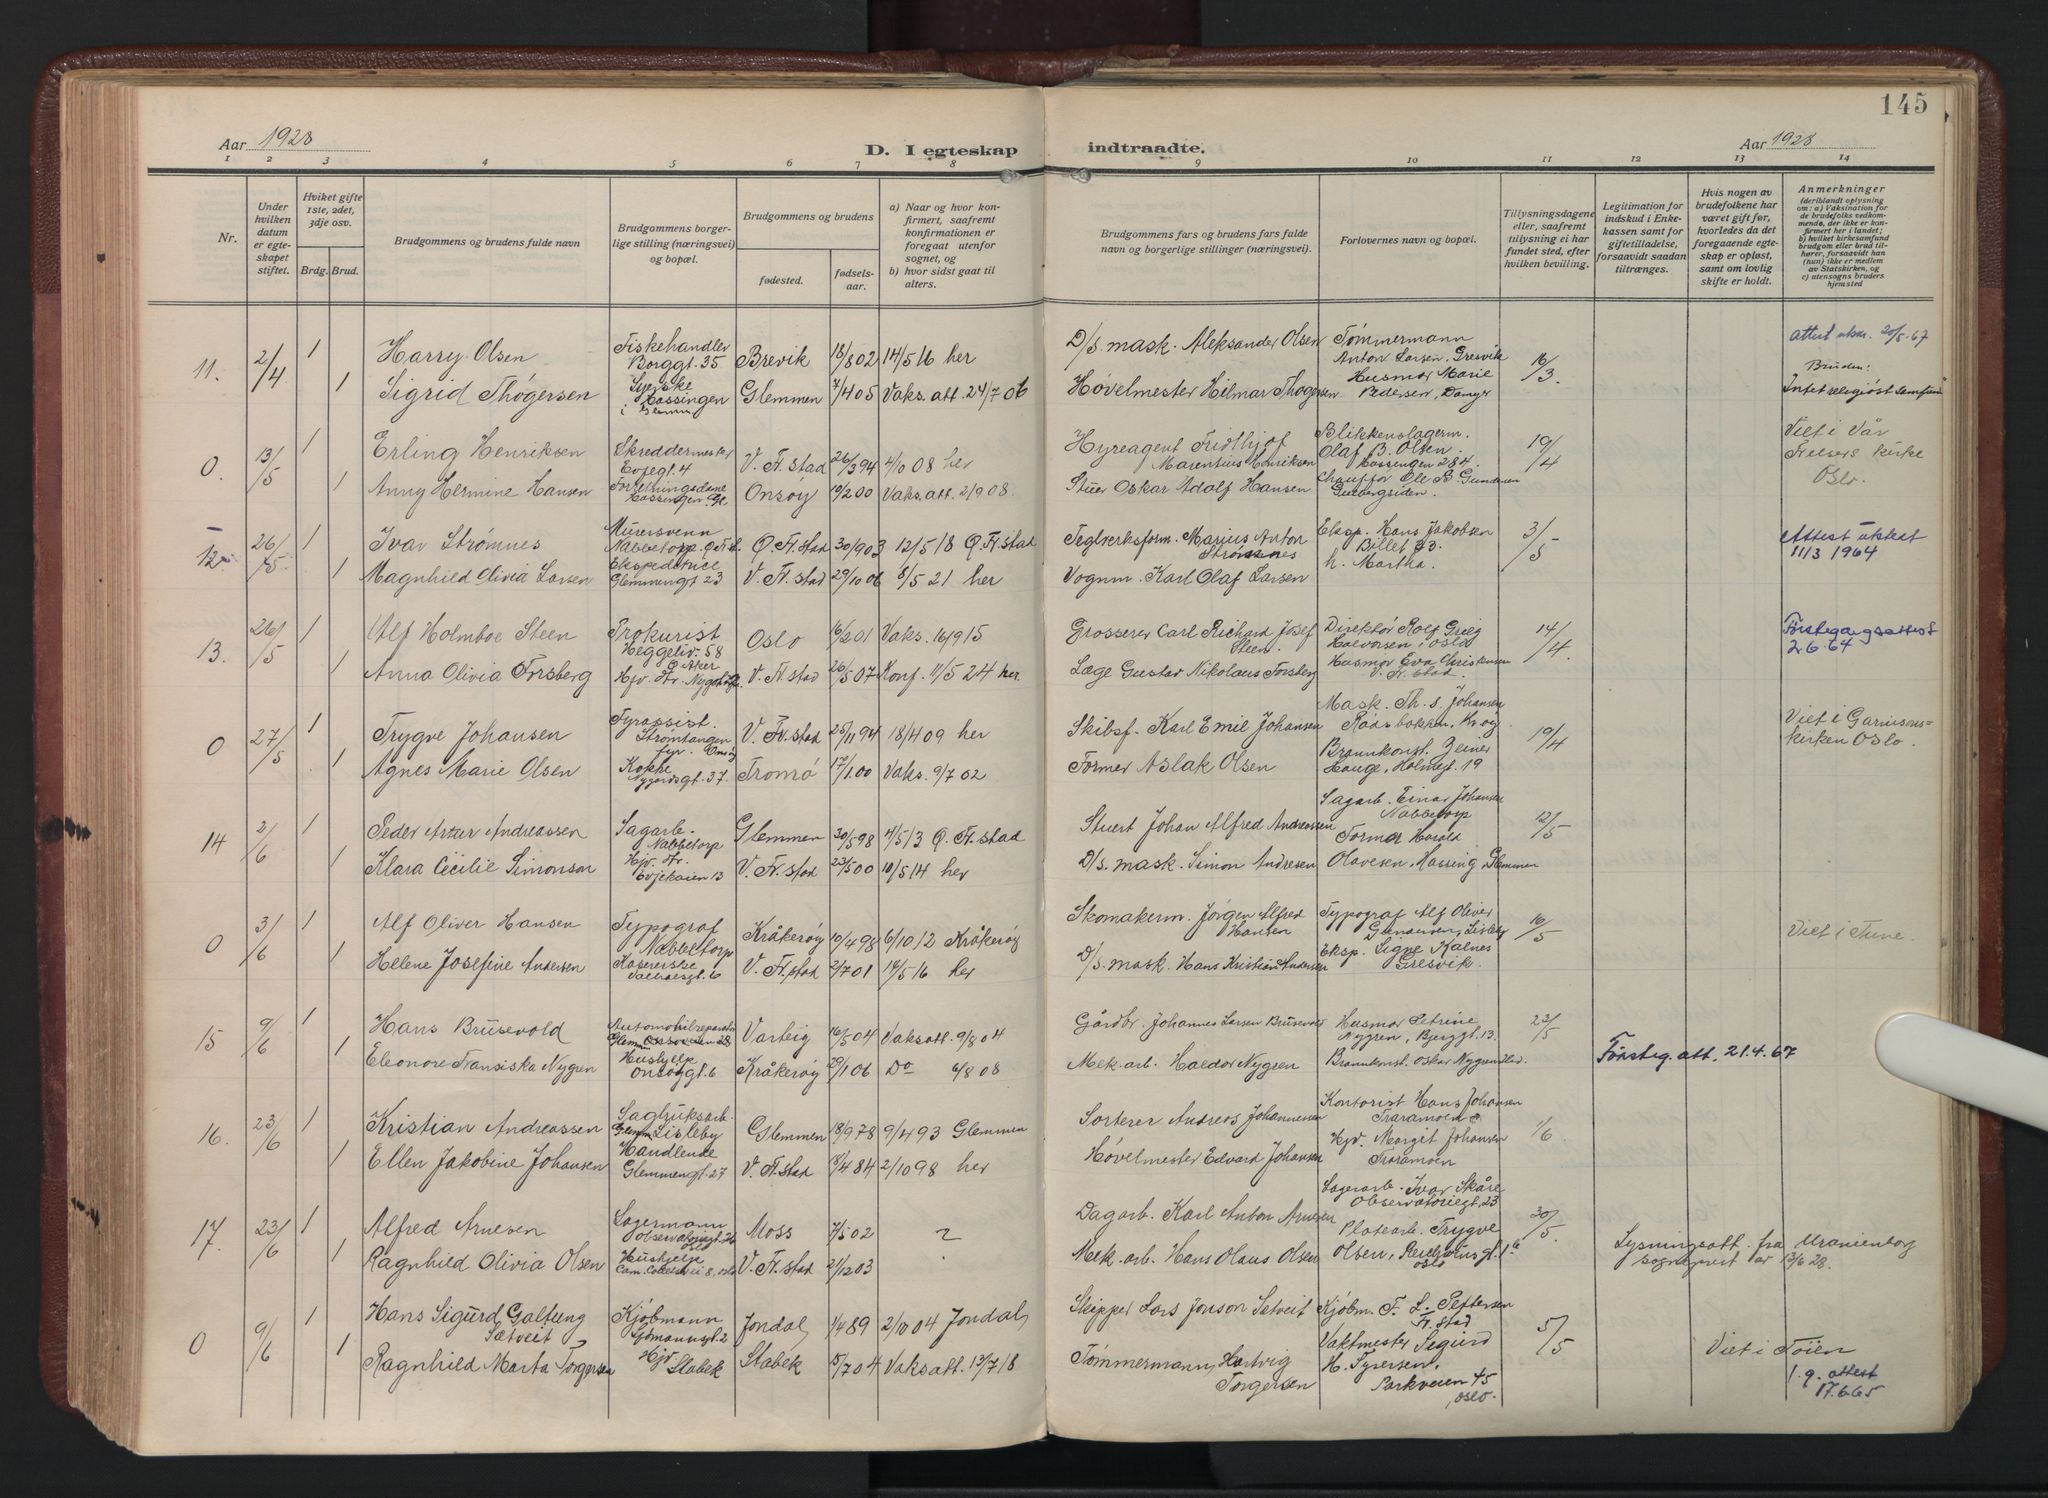 145
Aar 1928
D. I egteskap
indtraadte.
Aar 1928
1 2 3 4 5 6 7 8 9 10 11 12 13 14
Nr.
Under hvilken datum er egteskapet stiftet.
Hviket gifte 1ste, 2det, 3dje osv.
Brdg. Brud.
Brudgommens og brudens fulde navn
Brudgommens borgerlige stilling (næringsvei) og bopæl.
Brudgommens og brudens
fødested.
fødselsaar.
a) Naar og hvor konfirmert, saafremt konfirmationen er foregaat utenfor sognet, og
b) hvor sidst gaat til alters.
Brudgommens fars og brudens fars fulde navn og borgerlige stillinger (næringsvei).
Forlovernes navn og bopæl.
Tillysningsdagene eller, saafremt tillysning ei har fundet sted, efter hvilken bevilling.
Legitimation for indskud i Enkekassen samt for giftetilladelse, forsaavidt saadan tiltrænges.
Hvis nogen av brudefolkene har været gift før, hvorledes da det foregaaende egteskap er opløst, samt om lovlig skifte er holdt.
Anmerkninger
(deriblandt oplysning om: a) Vaksination for de brudefolks vedkommende, der ikke er konfirmert her i landet; b) hvilket kirkesamfund brudgom eller brud tilhører, forsaavidt han (hun) ikke er medlem av Statskirken, og c) utensogns bruders hjemsted
11. 2/4 1 Harry Olsen Fiskehandler Borggt. 35 Brevik 18/8 02 14/5 16 her D/s. mask. Aleksander Olsen Tømmermann Anton Larsen, Gresvik 16/3 Attest utst. 20/5.67
1 Sigrid Thøgersen Syerske Hassingen i Glemm Glemmen 7/4 05 Vaks. att. 24/7 06 Høvelmester Hilmar Thøgersen Husmor Marie Pedersen, Damyr Bruden: Intet religiøst samfund
0. 13/5 1 Erling Henriksen Skreddermester Evjegt. 4 V. Fr.stad 26/3 94 4/10 08 her Hyreagent Fridthjof Marentius Henriksen Blikkenslagerm. Olaf B. Olsen Hassingen 284. 19/4 Viet i Vår Frelsers kirke Oslo.
1 Anny Hermine Hansen Forretningsdame Hassingen Gl. Onsøy 19/2 00 Vaks. att. 2/9 08. Stuer Oskar Adolf Hansen Chauffør Ole B. Gundersen
12. 26/5 1 Ivar Strømnes Murersvenn Nabbetorp Ø. Fr.st. Ø. Fr.stad 30/9 03 12/5 18 Ø. Fr.stad Teglverksform. Marius Anton Strømnes Eksp. Hans Jakobsen 3/5 Attest utstest 11/3 1964
1 Magnhild Olivia Larsen Ekspeditrice Glemmengt 23 V. Fr.stad 29/10 06 8/5 21 her Vognm. Karl Olaf Larsen h. Martha.
13. 26/5 1 Alf Holmboe Steen Prokurist Heggeliv. 58 Ø Aker Oslo 16/2 01 Vaks. 16/9 15 Grosserer Carl Richard Josef Steen. Direktør Rolf Grieg Halvorsen, Oslo 14/4. Førstegangsattest 2.6.64
1 Anna Olivia Forsberg Hjv. Fr. V. Fr.stad 26/5 07 Konf. 11/5 24 her Læge Gustav Nikolaus Forsberg Husmor Eva Christensen V. Fr.stad.
0 27/5 1 Trygve Johansen Fyrassist. Strømtangen fyr. Onsøy V. Fr.stad 25/11 94 18/4 09 her Skibsf. Karl Emil Johansen Mask. Th. S. Johansen 19/4 Viet i Garnisonskirken Oslo.
1 Agnes Marie Olsen Kokke Nygårdsgt. 37. Tromsø 17/1 00 Vaks. 9/7 02 Former Aslak Olsen Brannkonst. Heiner Hauge, Holmegt. 19
14 2/6 1 Peder Artur Andreassen Sagarb. Nabbetorp Glemmen 30/5 98 4/5 13 Ø. Fr.stad Stuert Johan Alfred Andreassen Sagarb. Einar Johansen Nabbetorp 12/5
1 Klara Cecilie Simonsen Hjv. Fr. Evjekaien 13 V. Fr.stad 23/5 00 10/5 14 her D/s. mask. Simon Andresen Former Harald Olavesen, Hassing. Glemmen
0 3/6 1 Alf Oliver Hansen Typograf Nabbetorp Kråkerøy 10/4 98 6/10 12 Kråkerøy Skomakerm. Jørgen Alfred Hansen Typograf Alf Oliver Gunarsen, Lisleby 16/5 Viet i Tune.
1 Helene Josefine Andersen Kasererske V. Fr.stad 2/7 01 14/5 16 her D/s. mask. Hans Kristian Andersen Eksp. Signe Kalnes Gresvik.
15 9/6 1 Hans Brusevold Automobilreparatør Varteig 16/5 04 Vaksatt. 9/8 04 Gårdbr. Johannes Larsen Brusevold Husmor Petrine Nygren, Bjerggt. 13. 23/5
1 Eleonore Fransiska Nygren Hushjelp Onsøygt. 6 Kråkerøy 29/1 06 Do 6/8 08 Mek. arb. Haldor Nygren Brannkonst. Oskar Nygren Førsteg. att. 21.4.67
16. 23/6 1 Kristian Andreassen Sagbruksarb. Glemm Lisleby Glemmen 18/9 78 9/4 93 Glemmen Sorterer Andreas Johannesen Kontorist Hans Johansen Traramoen 1/6
1 Ellen Jakobine Johansen Handlende Glemmengt. 27 V. Fr.stad 13/4 84 2/10 98 her Høvelmester Edvard Johansen Hjv. Margit Johansen Traramoen
17. 23/6 1 Alfred Arnesen Lagermann Observatoriegt. 23 Oslo Moss 7/5 02 ? Dagarb. Karl Anton Arnesen Lagerarb. Ivar Skåre Observatoriegt. 23 30/5.
1 Ragnhild Olivia Olsen Hushjelp Cam. Collets v. 8, Oslo V. Fr.stad 21/12 03 Mek. arb. Hans Olaus Olsen Platearb. Trygve Olsen, Oslo Lysningsatt. fra Uranienborg sogneprest av 13/6 28.
0 9/6 1 Hans Sigurd Galtung Sætveit Kjøbmann Jondal 1/4 89 2/10 04 Jondal Skipper Lars Jonson Setveit Kjøbm. F. L. Pettersen Fr.stad 5/5 Viet i Tøien
1 Ragnhild Marta Torgersen Hjv. Stabek Stabek 15/7 04 Vaksatt. 13/7 18 Tømmermann, Hartvig Torgersen Vaktmester Sigurd H. Syversen, Parkveien 45, Oslo. 1. g. attest 17.6.65